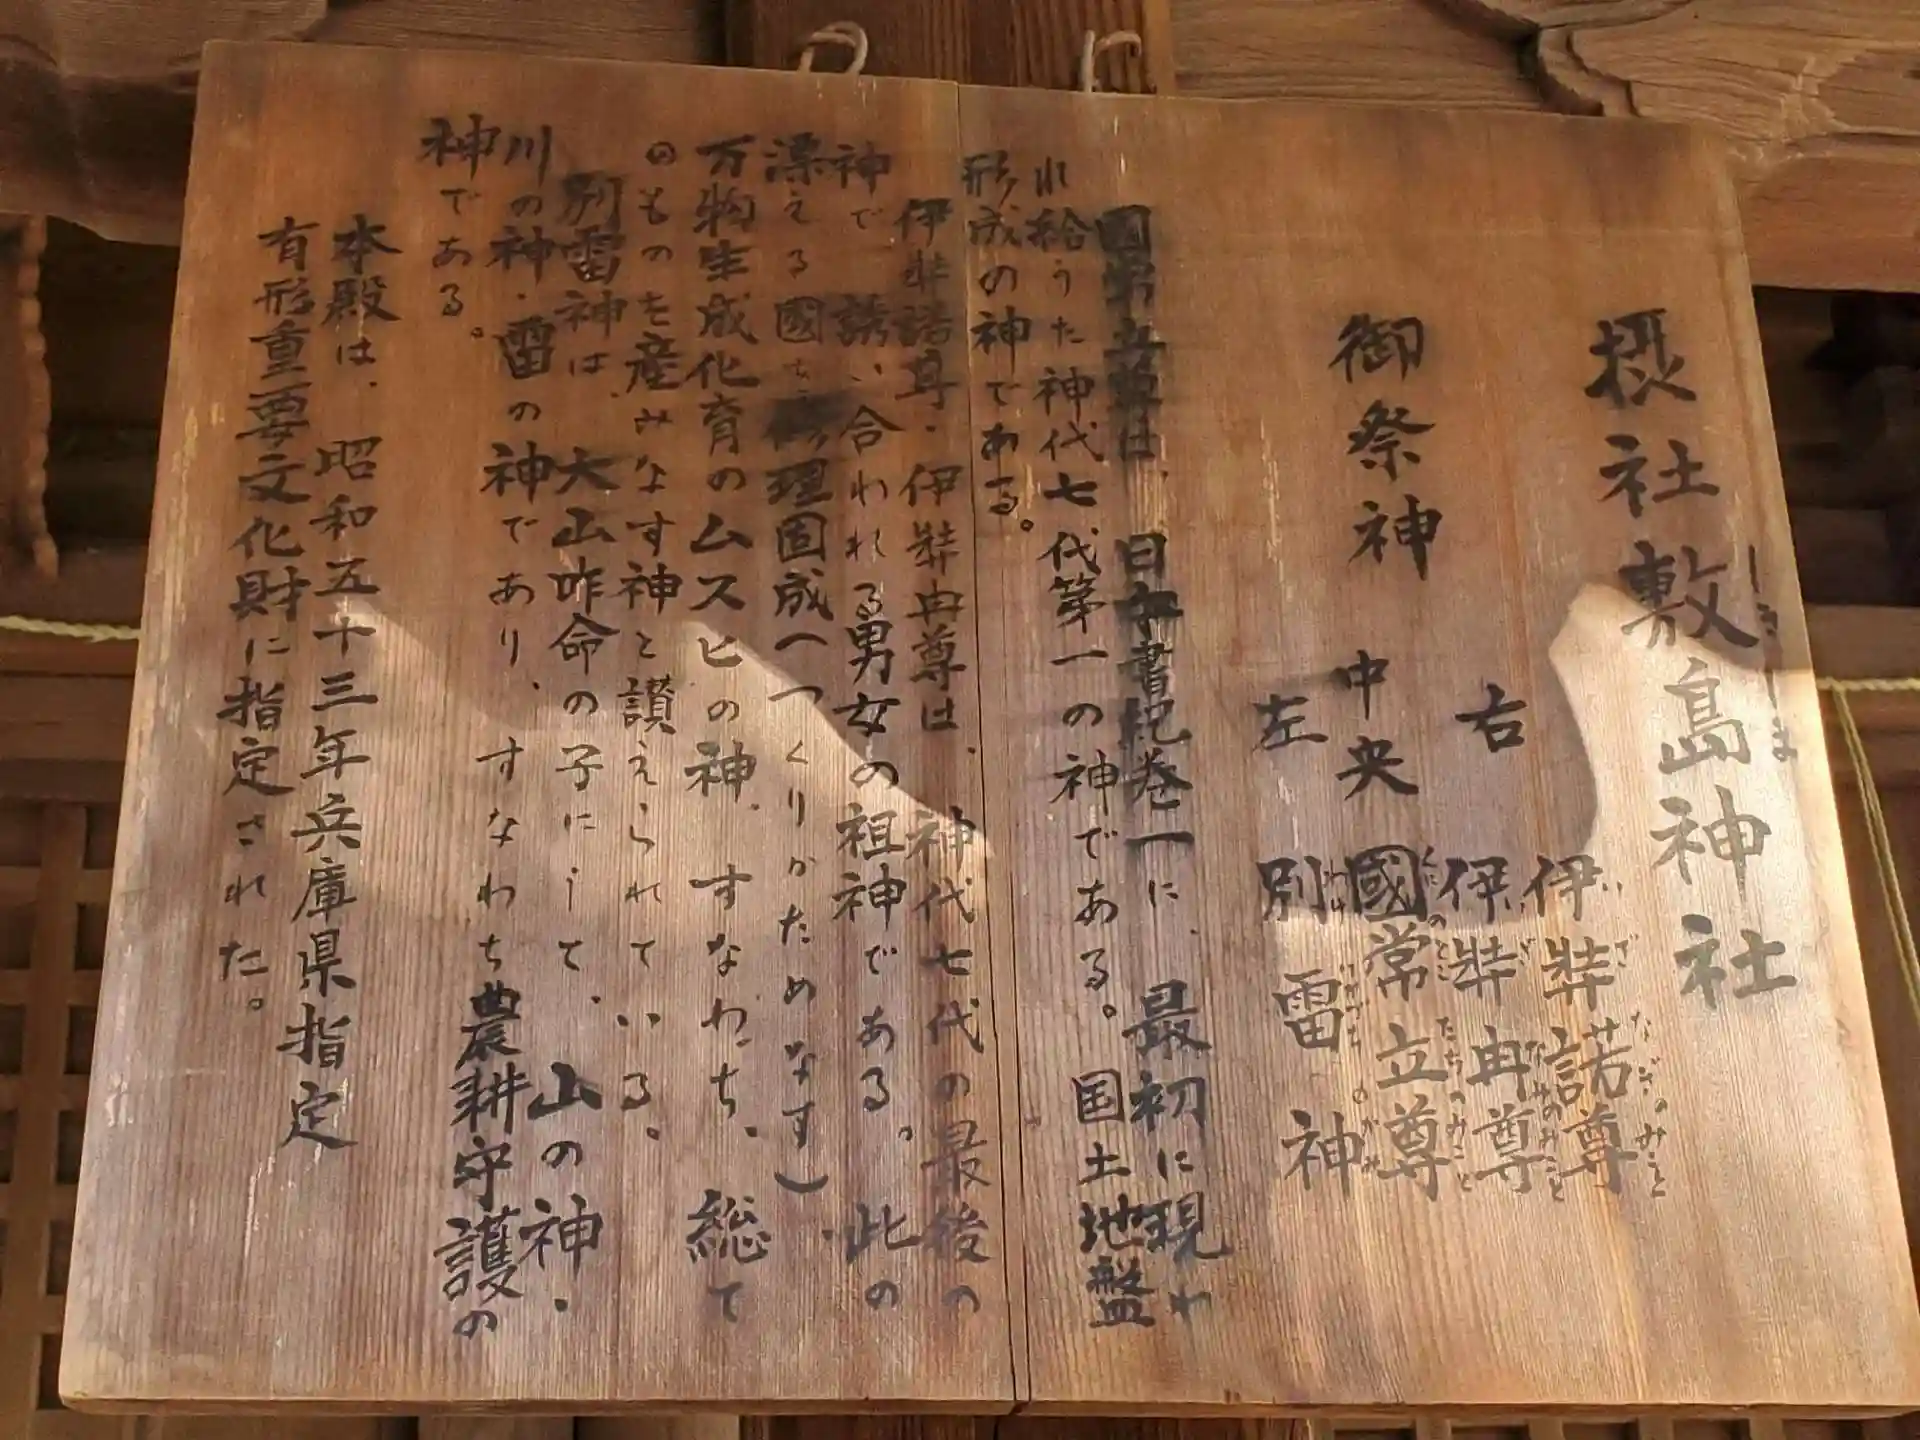 摂社敷島神社
しきしま
御祭神
右 伊弉諾尊
いざなぎのみこと
伊弉冉尊
いざなみのみこと
中央 國常立尊
くにのとこたちのみこと
左 別雷神
わけいかづちのかみ
國常立尊は、日本書紀巻一に、最初に現わ
れ給うた神代七代第一の神である。国土地盤
形成の神である。
伊弉諾尊・伊弉冉尊は、神代七代の最後の
神で 誘い合われる男女の祖神である。此の
漂える國を修理固成(つくりかためなす)、
万物生成化育のムスヒの神、すなわち、総て
のものを産みなす神と讃えられている。
別雷神は、大山咋命の子にして、山の神・
川の神・雷の神であり、すなわち農耕守護の
神である。
本殿は、昭和五十三年兵庫県指定
有形重要文化財に指定された。